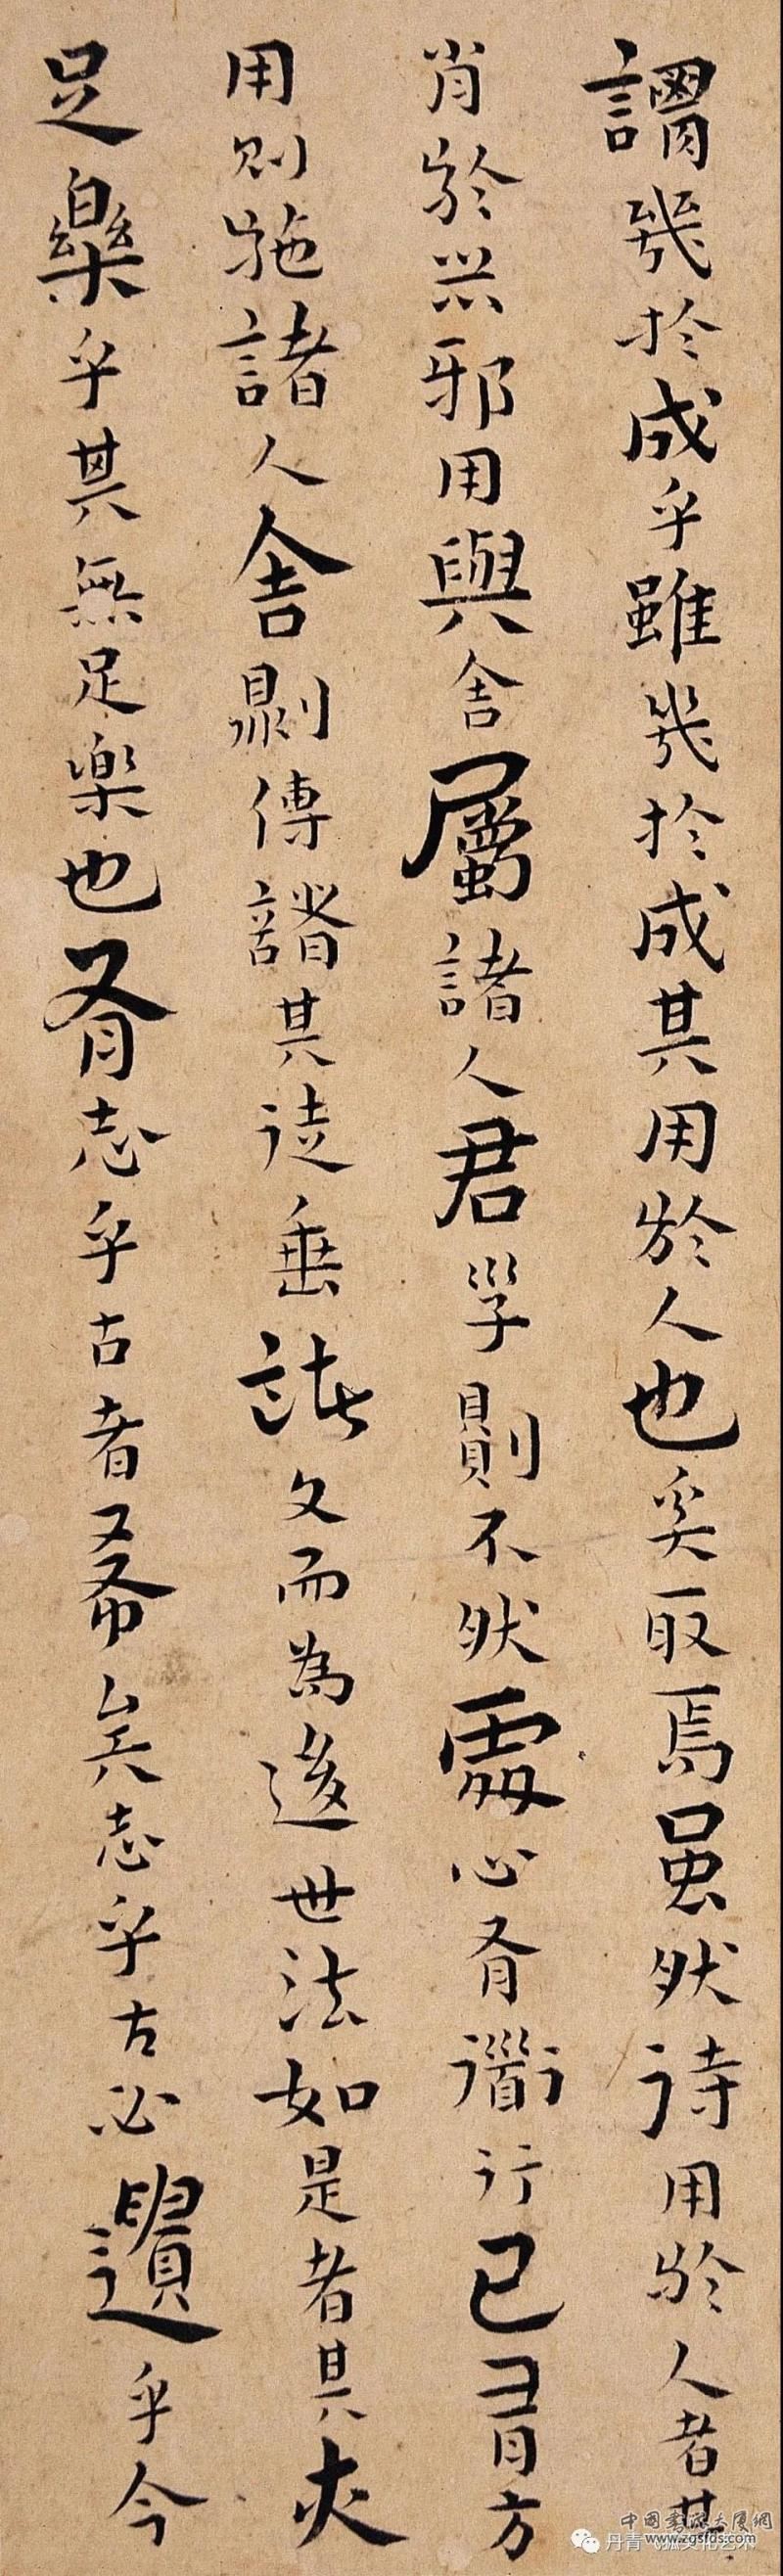 謂幾於成乎雖幾於成其用於人也奚取焉虽然待用於人者其
肖於器邪用與舍屬諸人君子則不然處心有道行己有方
用則施諸人舍則傳諸其徒垂諸文而為後世法如是者其亦
足樂乎其無足樂也有志乎古者希矣志乎古必遺乎今
中国书法大厦網
www.zgsfds.com